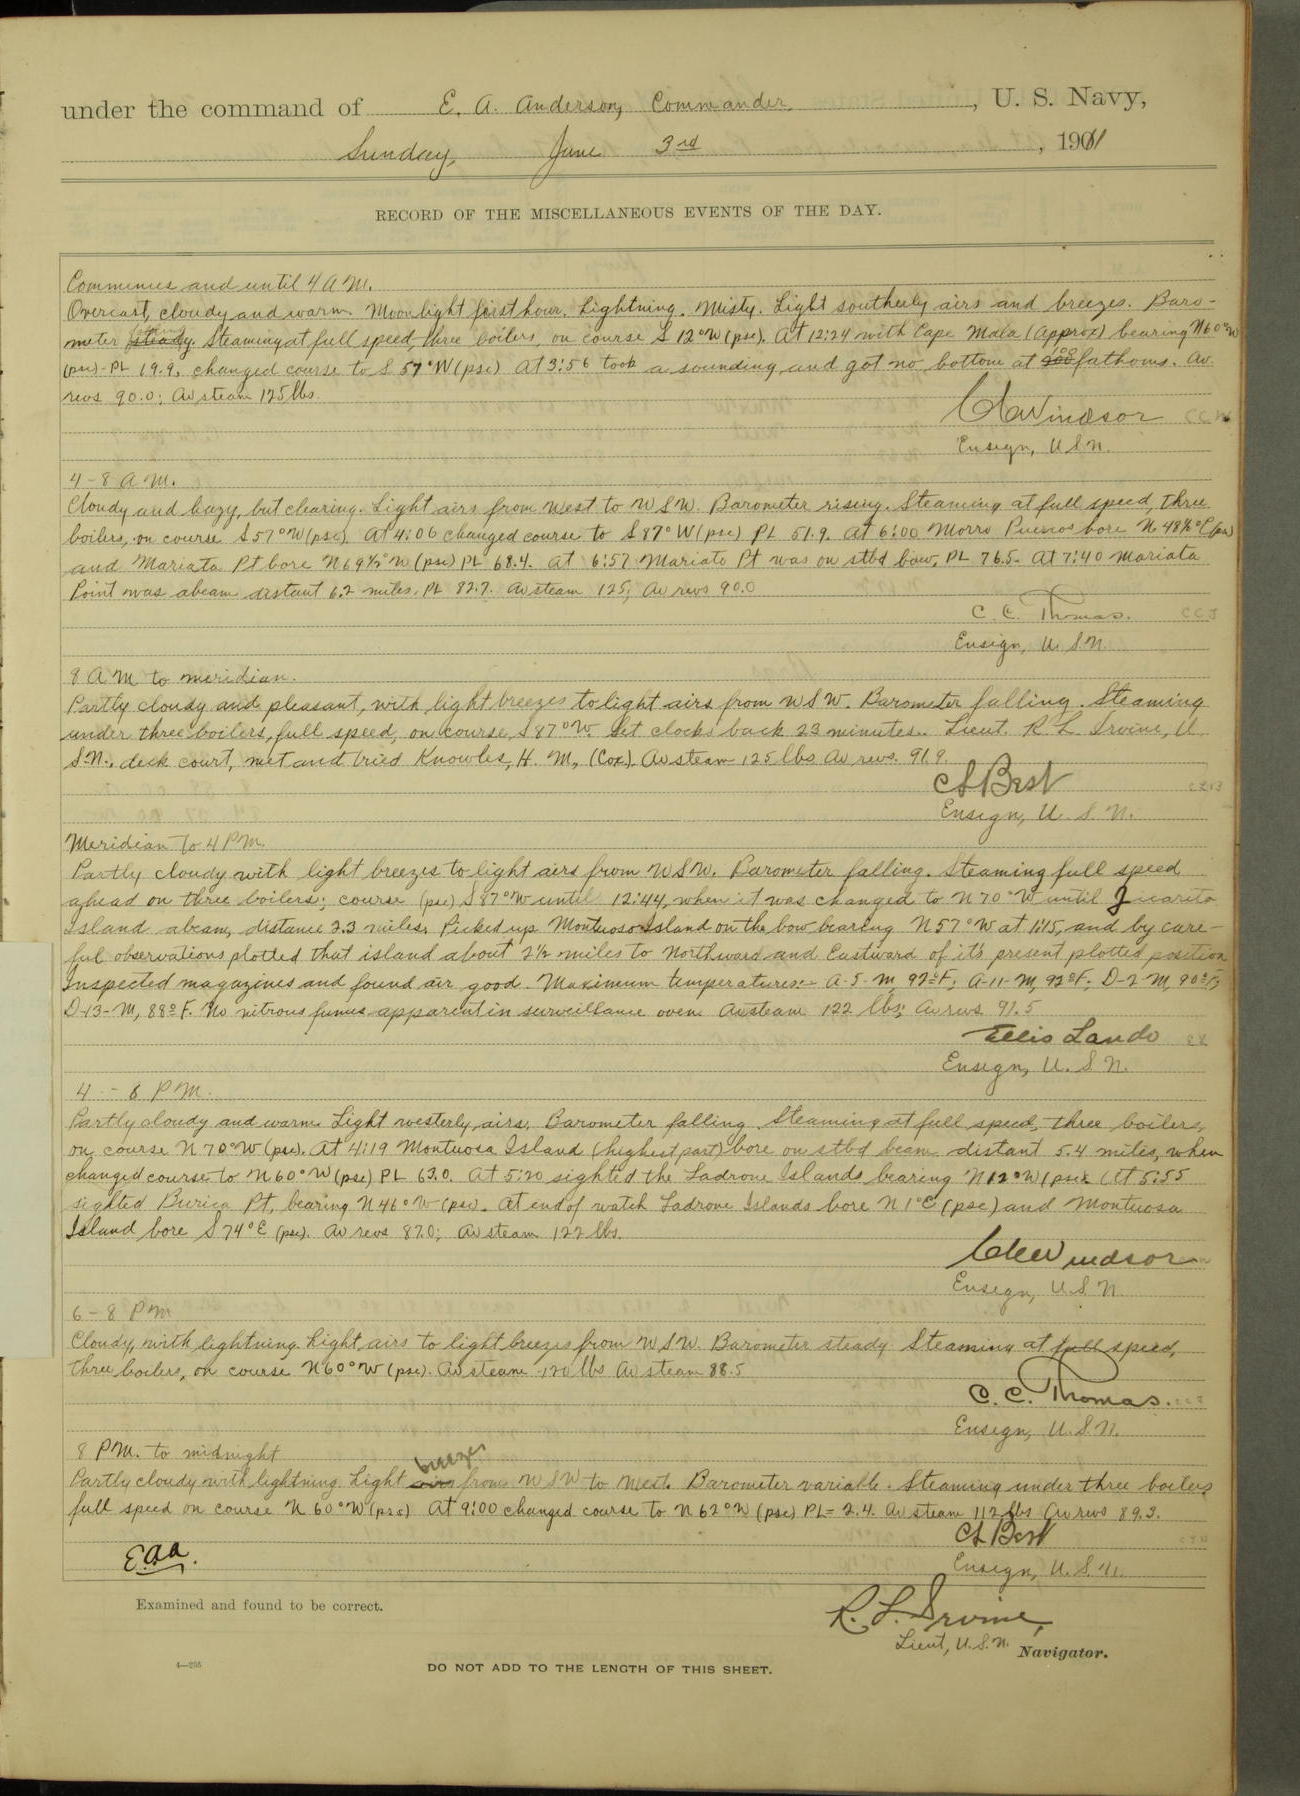 under the command of E. A. Anderson, Commander, U. S. Navy,
Sunday, June 3rd, 1911
RECORD OF THE MISCELLANEOUS EVENTS OF THE DAY.
Commences and until 4 A M.
Overcast, cloudy and warm. Moonlight first hour. Lightning. Misty. Light southerly airs and breezes. Baro-
meter steady. Steaming at full speed, three boilers, on course S 12°W (psc). At 12:24 with Cape Mala (Approx) bearing N60°W
(psc) - PL 19.9, changed course to S 57°W (psc) At 3:56 took a sounding and got no bottom at fathoms. Av.
revs 90.0; Av steam 125 lbs.
Windsor
Ensign, U S N.
4 - 8 A M.
Cloudy and hazy, but clearing. Light airs from West to WSW. Barometer rising. Steaming at full speed, three
boilers, on course S 57°W (psc). At 4:06 changed course to S 87°W (psc) PL 51.9. At 6:00 Morro Puercos bore N 48½°E (psc)
and Mariata Pt bore N 69½°W (psc) PL 68.4. At 6:57 Mariato Pt was on stbd bow, PL 76.5. At 7:40 Mariata
Point was abeam distant 6.2 miles, PL 82.7. Av steam 125; Av revs 90.0
C. C. Thomas.
Ensign, U. S.N.
8 A M to meridian.
Partly cloudy and pleasant, with light breezes to light airs from WSW. Barometer falling. Steaming
under three boilers, full speed, on course S 87°W. Set clocks back 23 minutes. Lieut. R L Irvine, U.
S.N., deck court, met and tried Knowles, H. M., (Cox). Av steam 125 lbs Av revs. 91.9.
C L Best
Ensign, U. S. N.
Meridian to 4 P M.
Partly cloudy with light breezes to light airs from WSW. Barometer falling. Steaming full speed
ahead on three boilers; course (psc) S 87°W until 12:44, when it was changed to N 70°W until Jicarita
Island abeam, distance 2.3 miles. Picked up Montuosa Island on the bow bearing N 57°W at 1:15, and by care-
ful observations plotted that island about 2½ miles to Northward and Eastward of it's present plotted position
Inspected magazines and found air good. Maximum temperatures:- A-5-M, 92°F; A-11-M, 92°F; D-2-M, 90°F;
D-13-M, 88°F. No nitrous fumes apparent in surveillance oven. Av steam 122 lbs; Av revs 91.5
Ellis Lando
Ensign, U. S N.
4 - 8 P M.
Partly cloudy and warm. Light westerly airs. Barometer falling. Steaming at full speed, three boilers,
on course N 70°W (psc). At 4:19 Montuosa Island (highest part) bore on stbd beam distant 5.4 miles, when
changed course to N 60°W (psc) PL 63.0. At 5:20 sighted the Ladrone Islands bearing N 12°W (psc). At 5:55
sighted Burica Pt, bearing N 46°W (psc). At end of watch Ladrone Islands bore N 1°E (psc) and Montuosa
Island bore S 74°E (psc). Av revs 87.0; Av steam 122 lbs.
Windsor
Ensign, U.S N.
6 - 8 P M
Cloudy, with lightning. Light airs to light breezes from WSW. Barometer steady. Steaming at full speed,
three boilers, on course N 60°W (psc). Av steam 120 lbs Av steam 88.5
C. C. Thomas.
Ensign, U.S.N.
8 P M. to midnight
breezes
Partly cloudy with lightning. Light airs from WSW to West. Barometer variable. Steaming under three boilers
full speed on course N 60°W (psc) At 9:00 changed course to N 62°W (psc) PL= 2.4. Av steam 112 lbs Av revs 89.3.
C L Best
Ensign, U. S. N.
E.A.A.
Examined and found to be correct.
R. L. Irvine,
Lieut, U.S.N. Navigator.
4—205
DO NOT ADD TO THE LENGTH OF THIS SHEET.